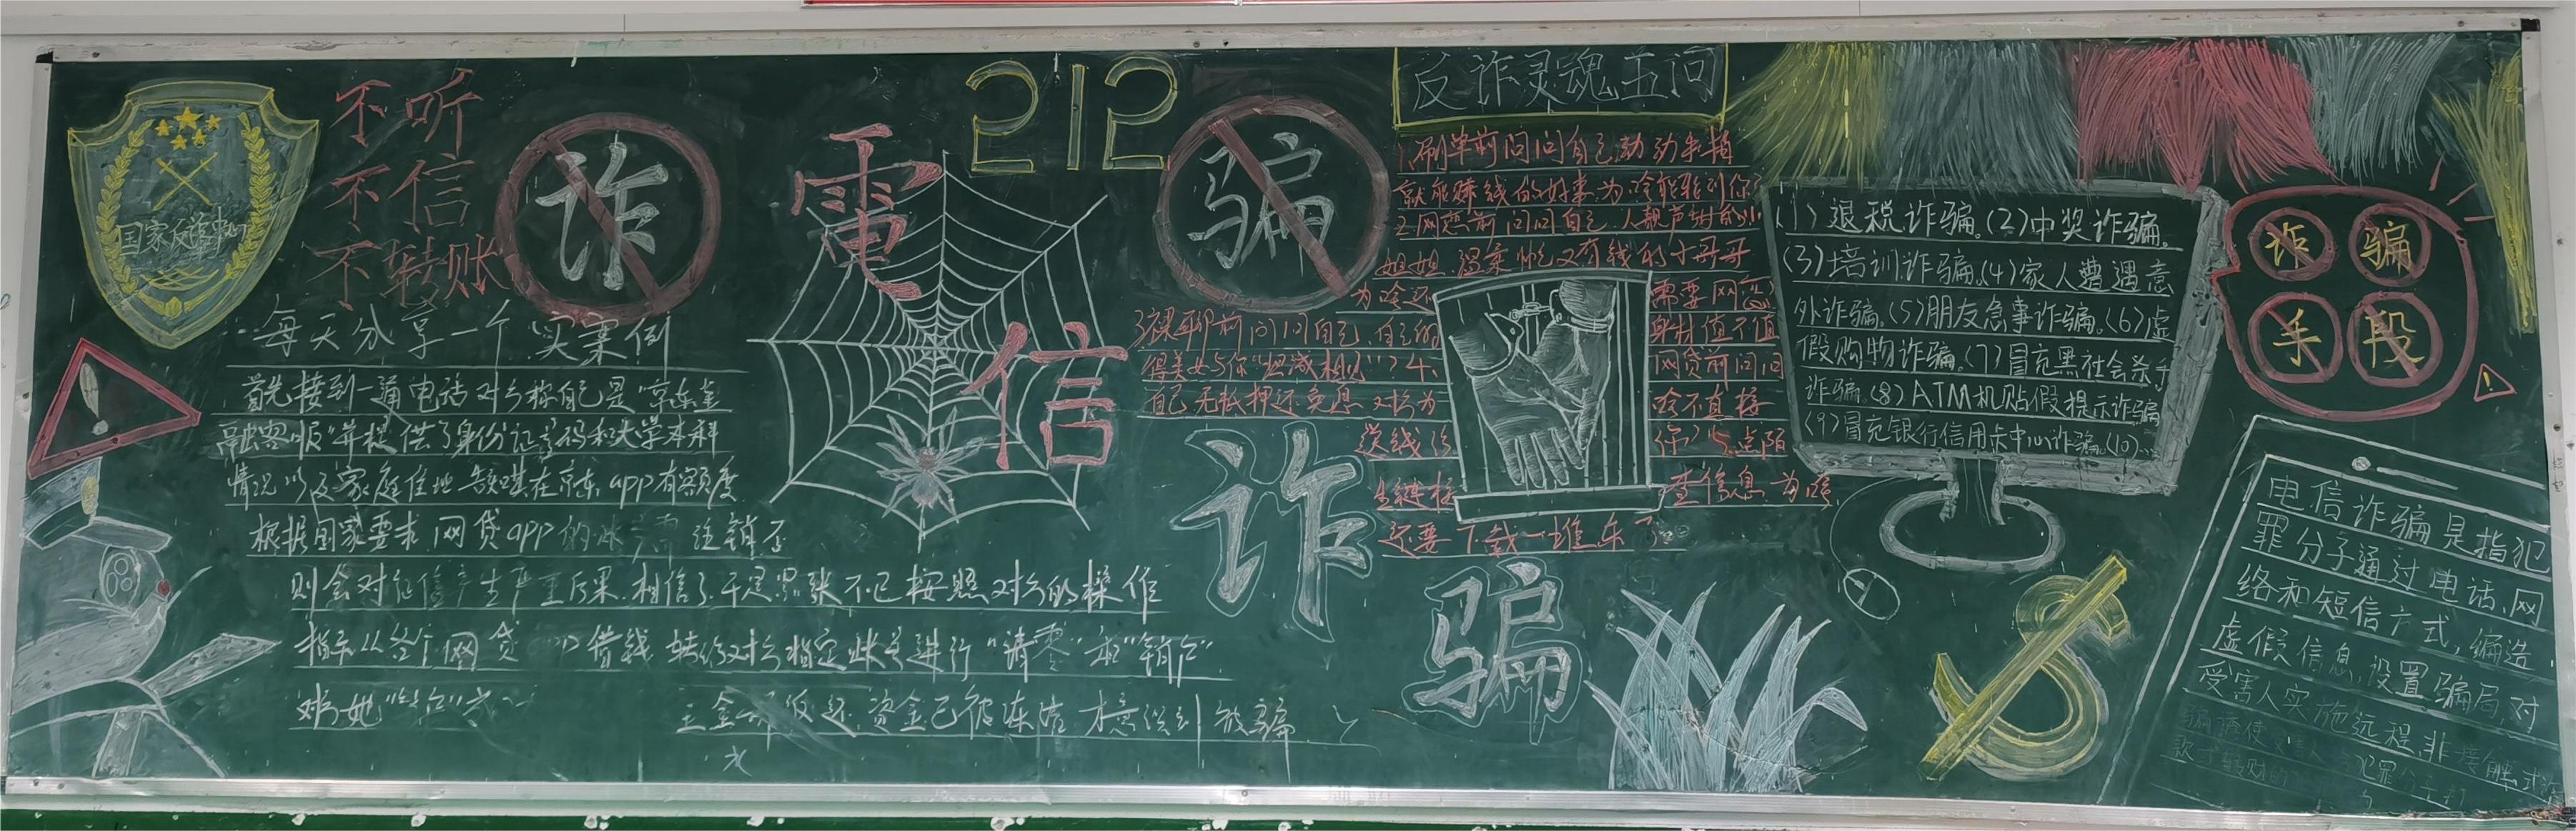 国家反诈中心
不听
不信
不转账
诈
每天分享一个实案例
首先接到一通电话对方称自己是"京东金
融客服"并提供了身份证号码和大学本科
情况以及家庭住址 在京东app有额度
根据国家要求网贷app的 注销否
则会对征信产生严重后果.相信了.于是紧张不已按照对方的操作
指示从各个网贷 借钱 转给对方指定账号进行"清零"和"销户"
返还.资金已被冻结 意识到被骗
電
信
212
骗
诈
骗
反诈灵魂五问
1.刷单前问问自己动动手指
就能赚钱的好事为啥能轮到你?
2.网恋前问问自己.人靓声甜的小
姐姐.温柔帅气又有钱的小哥哥
为啥还需要网恋
3裸聊前问问自己.自己的身材值不值
得美女与你"坦诚相见"?4.网贷前问问
自己无抵押还免息对方为啥不直接
送钱给你?5.点陌
生链接查信息为啥
还要下载一堆东
(1)退税诈骗。(2)中奖诈骗。
(3)培训诈骗(4)家人遭遇意
外诈骗。(5)朋友急事诈骗。(6)虚
假购物诈骗。(7)冒充黑社会杀手
诈骗。(8)ATM机贴假提示诈骗
(9)冒充银行信用卡中心诈骗。(10)...
诈 骗
手 段
电信诈骗是指犯
罪分子通过电话、网
络和短信方式,编造
虚假信息,设置骗局,对
受害人实施远程、非接触式
骗 诱使 人 犯罪分子打
款或转账的